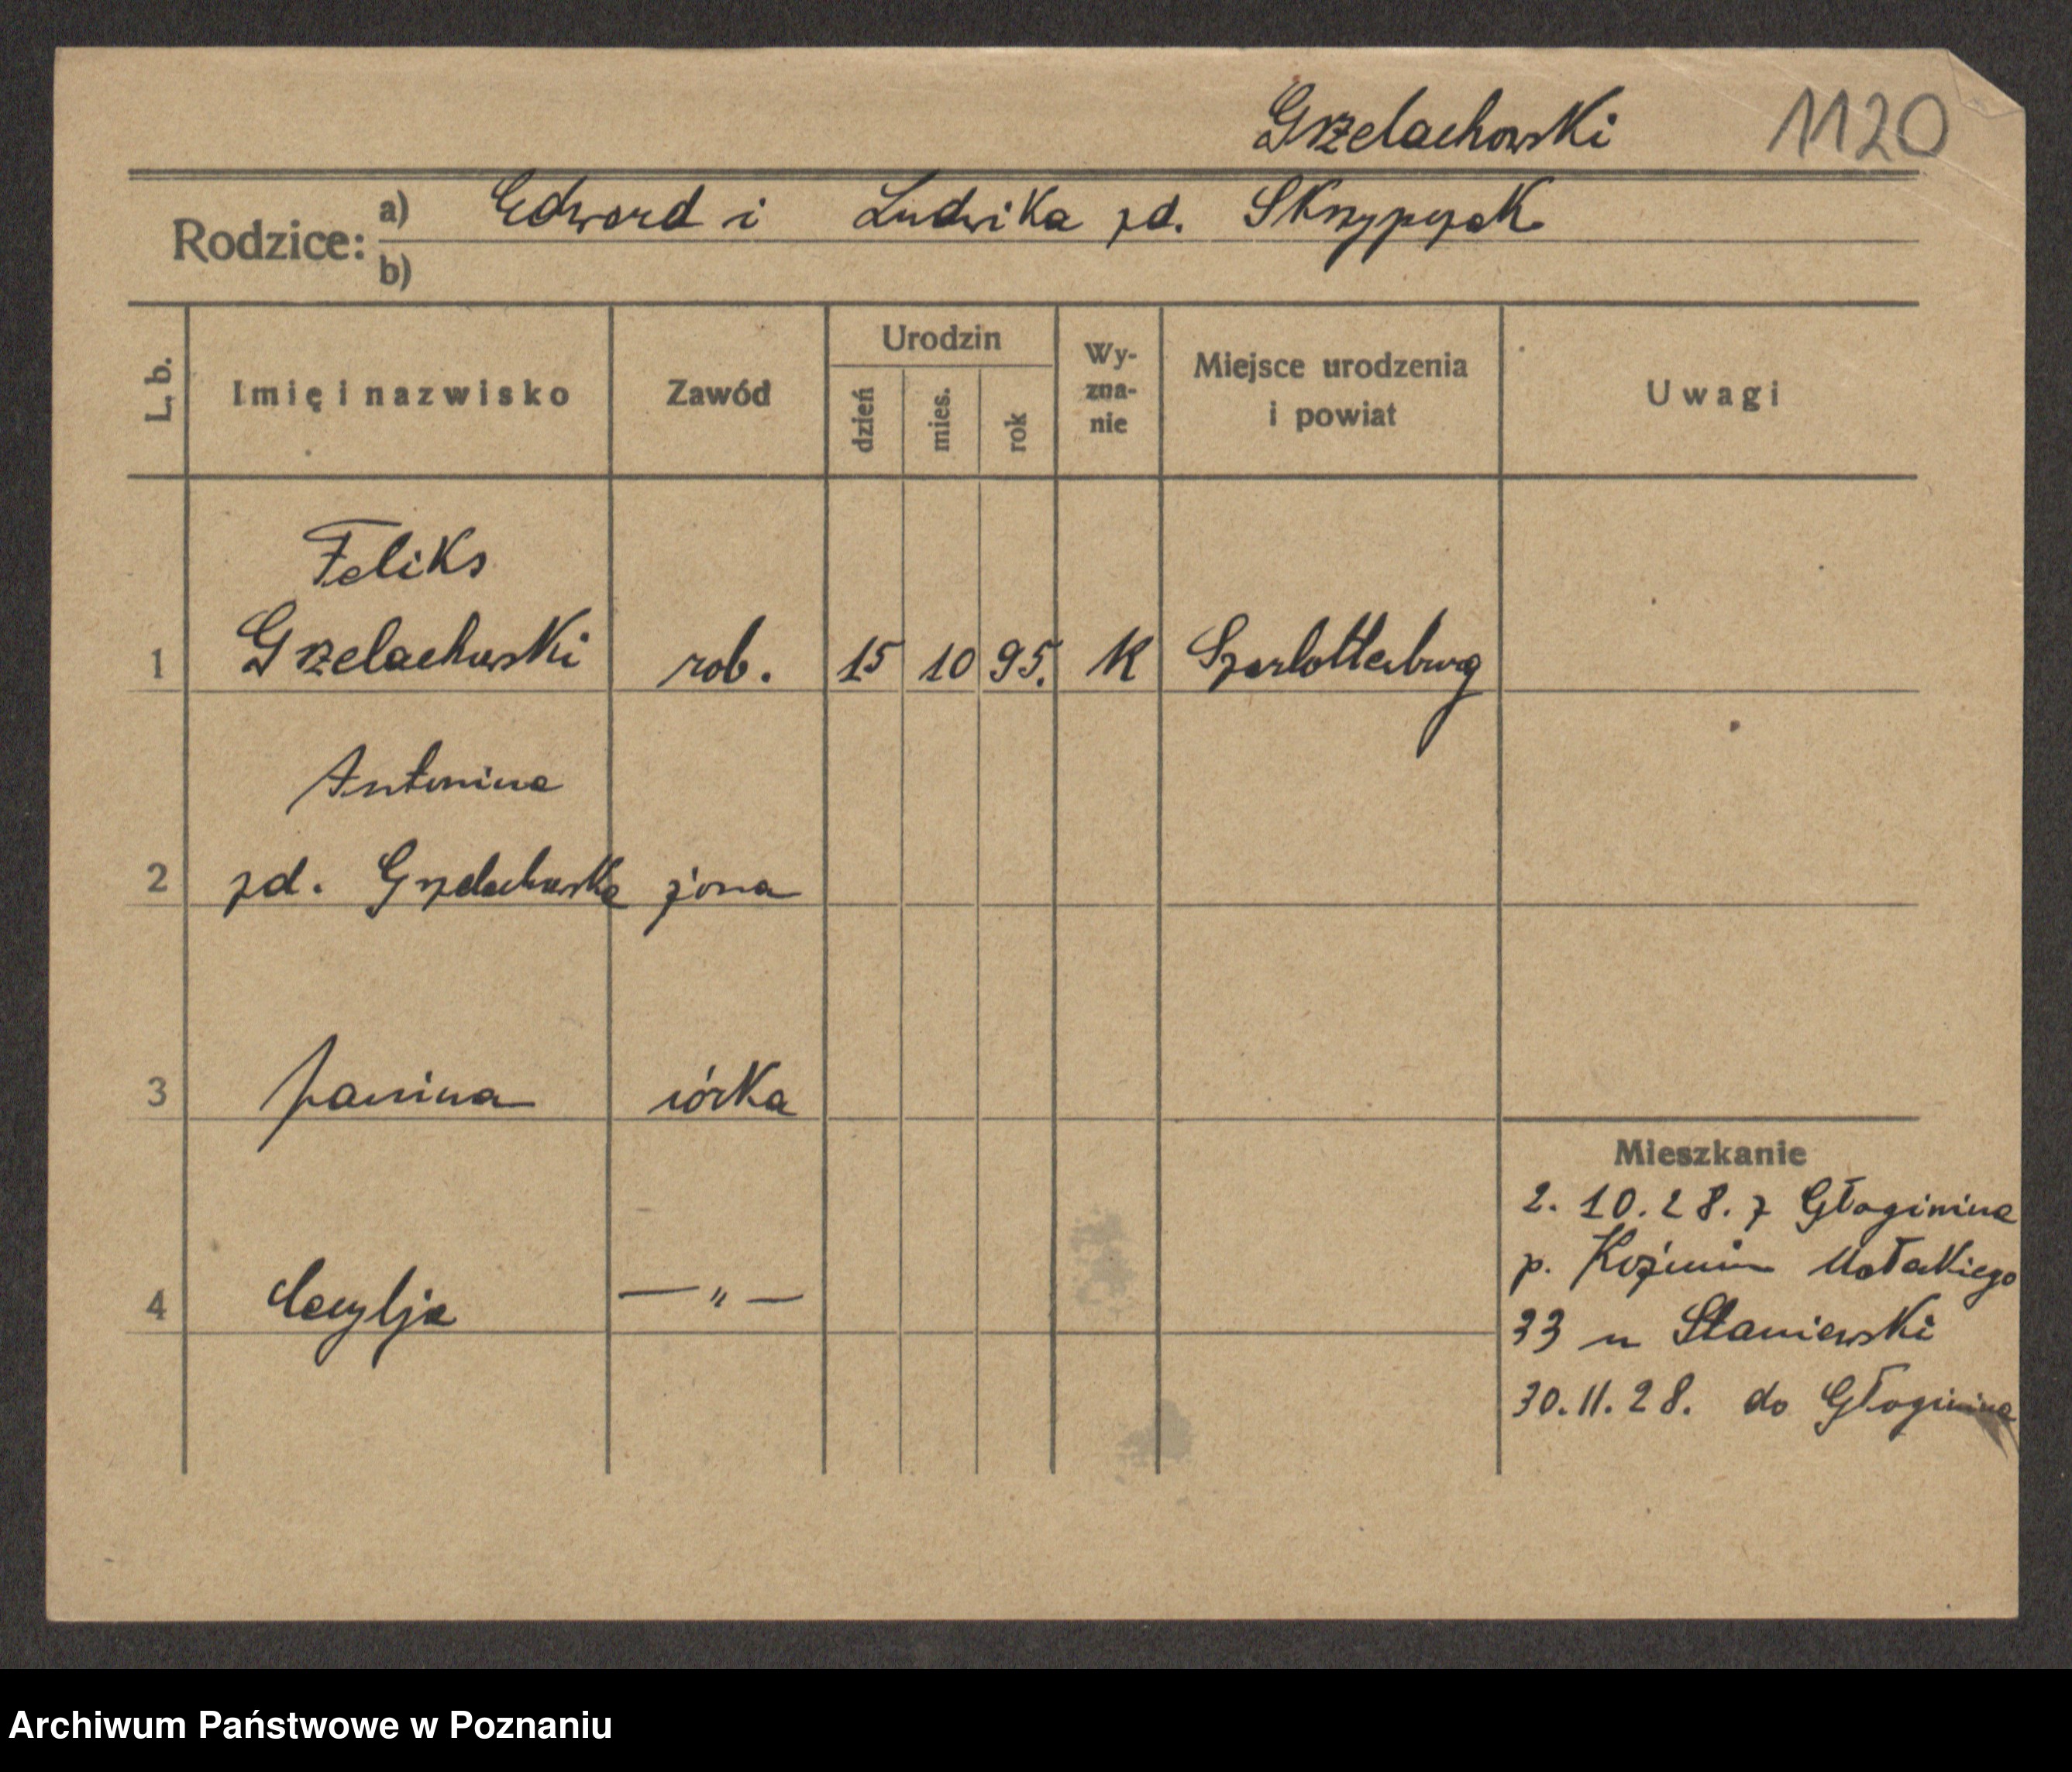 Grzelachowski 1120
Rodzice: a) Edward i Ludwika zd. Skrzypczak
b)
L. b. Imię i nazwisko Zawód Urodzin dzień mies. rok Wy-zna-nie Miejsce urodzenia i powiat Uwagi
Feliks
1 Grzelachowski rob. 15 10 95. K Szarlottenburg
Antonina
2 zd. Grzelachowska żona
3 Janina córka
Mieszkanie
2. 10. 28. z Głoginina
p. Koźmin
4 Cecylja — " —
33 u Staniewski
30. 11. 28. do Głoginina
Archiwum Państwowe w Poznaniu